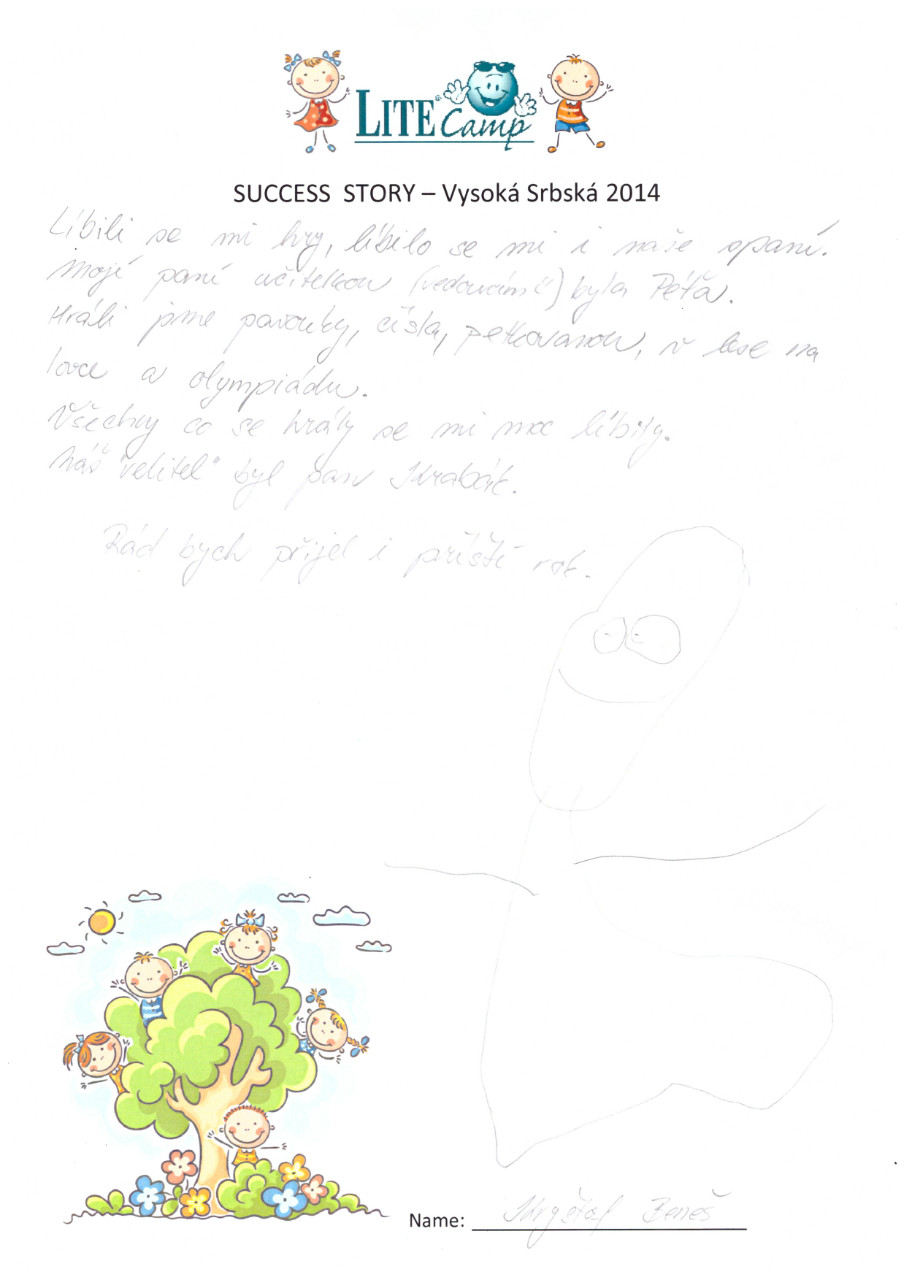 LITE® Camp
SUCCESS STORY – Vysoká Srbská 2014
Líbili se mi hry, líbilo se mi i naše spaní.
Mojí paní učitelkou (vedoucím) byla Péťa.
Hráli jsme pavouky, čísla, petkovanou, v lese na
lovce a olympiádu.
Všechny co se hrály se mi moc líbily.
Náš "velitel" byl pan Krabák.
Rád bych přijel i příští rok.
Name: Kryštof Beneš